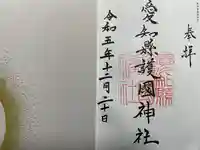 奉拝
愛知縣護國神社
令和五年十二月二十日